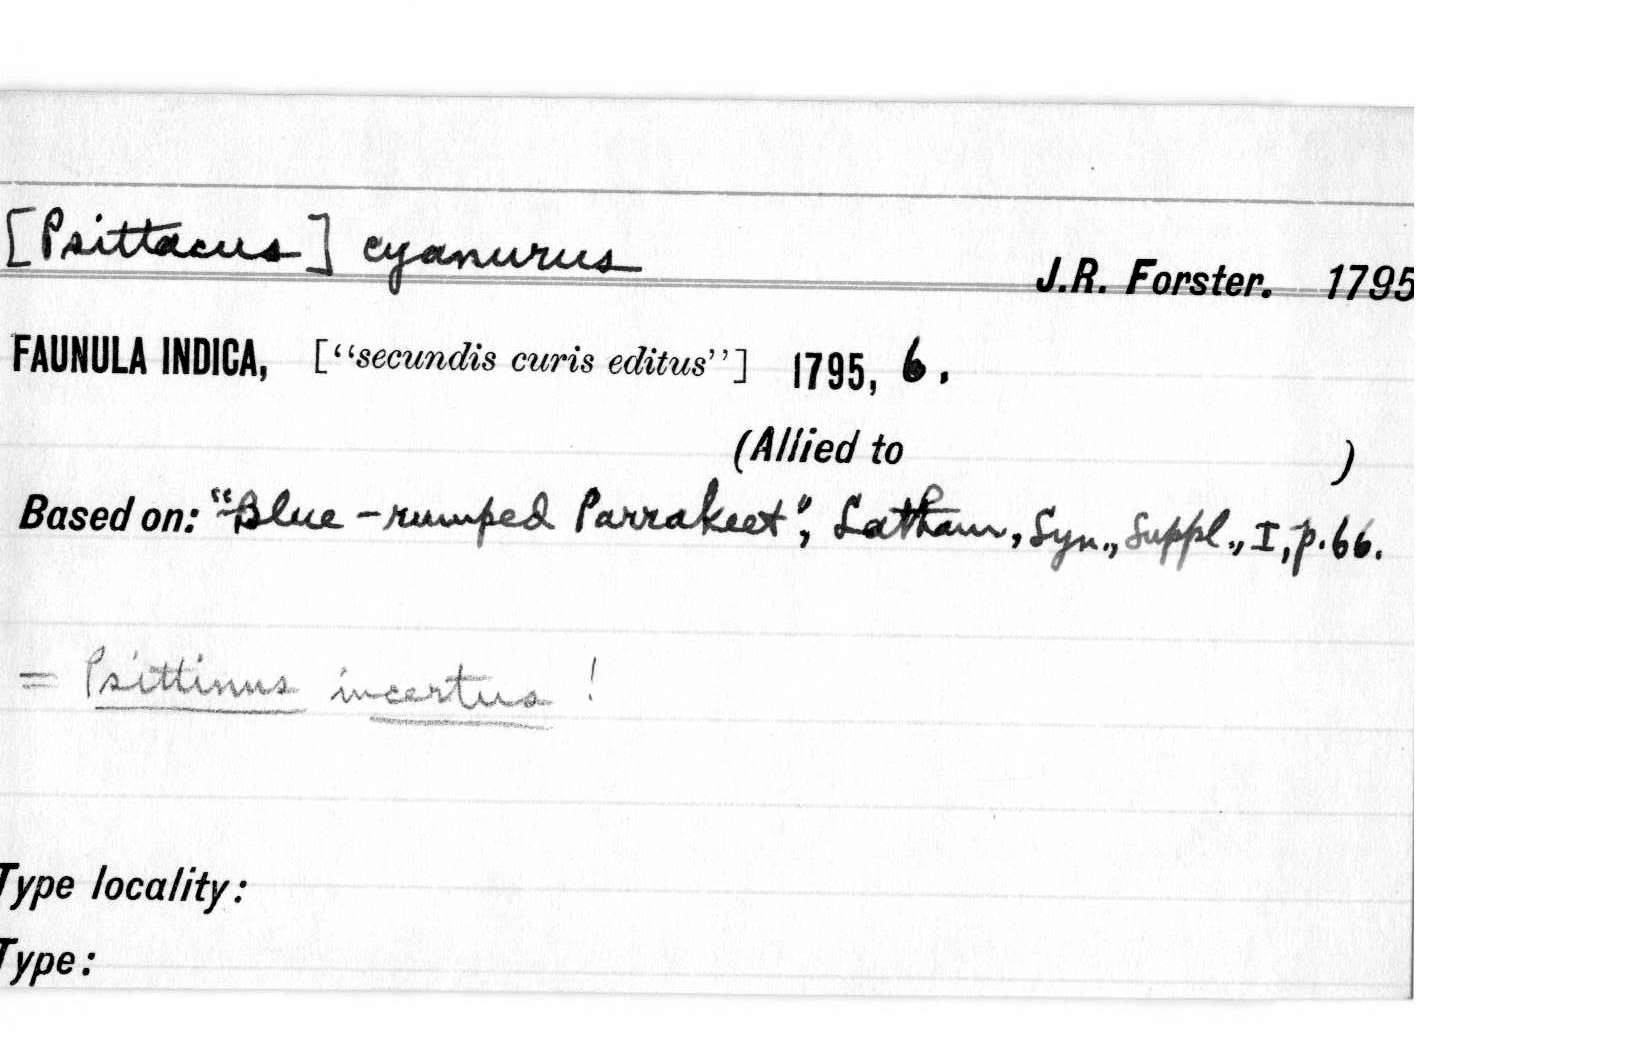 [Psittacus] cyanurus
J.R. Forster. 1795
FAUNULA INDICA, [“secundis curis editus”] 1795, 6.
(Allied to )
Based on: "Blue-rumped Parrakeet", Latham, Syn., Suppl., I, p.66.
= Psittinus incertus !
Type locality:
Type: